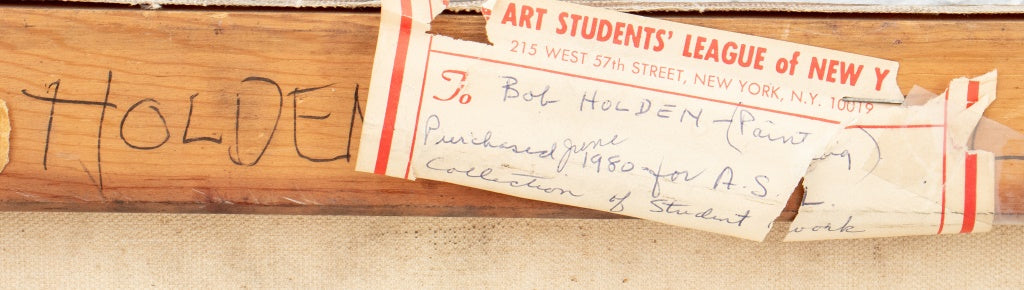 HOLDEN
ART STUDENTS' LEAGUE of NEW Y
215 WEST 57th STREET, NEW YORK, N.Y. 10019
To Bob HOLDEN - (Painting)
Purchased June 1980 for A.S.L.
Collection of Student work